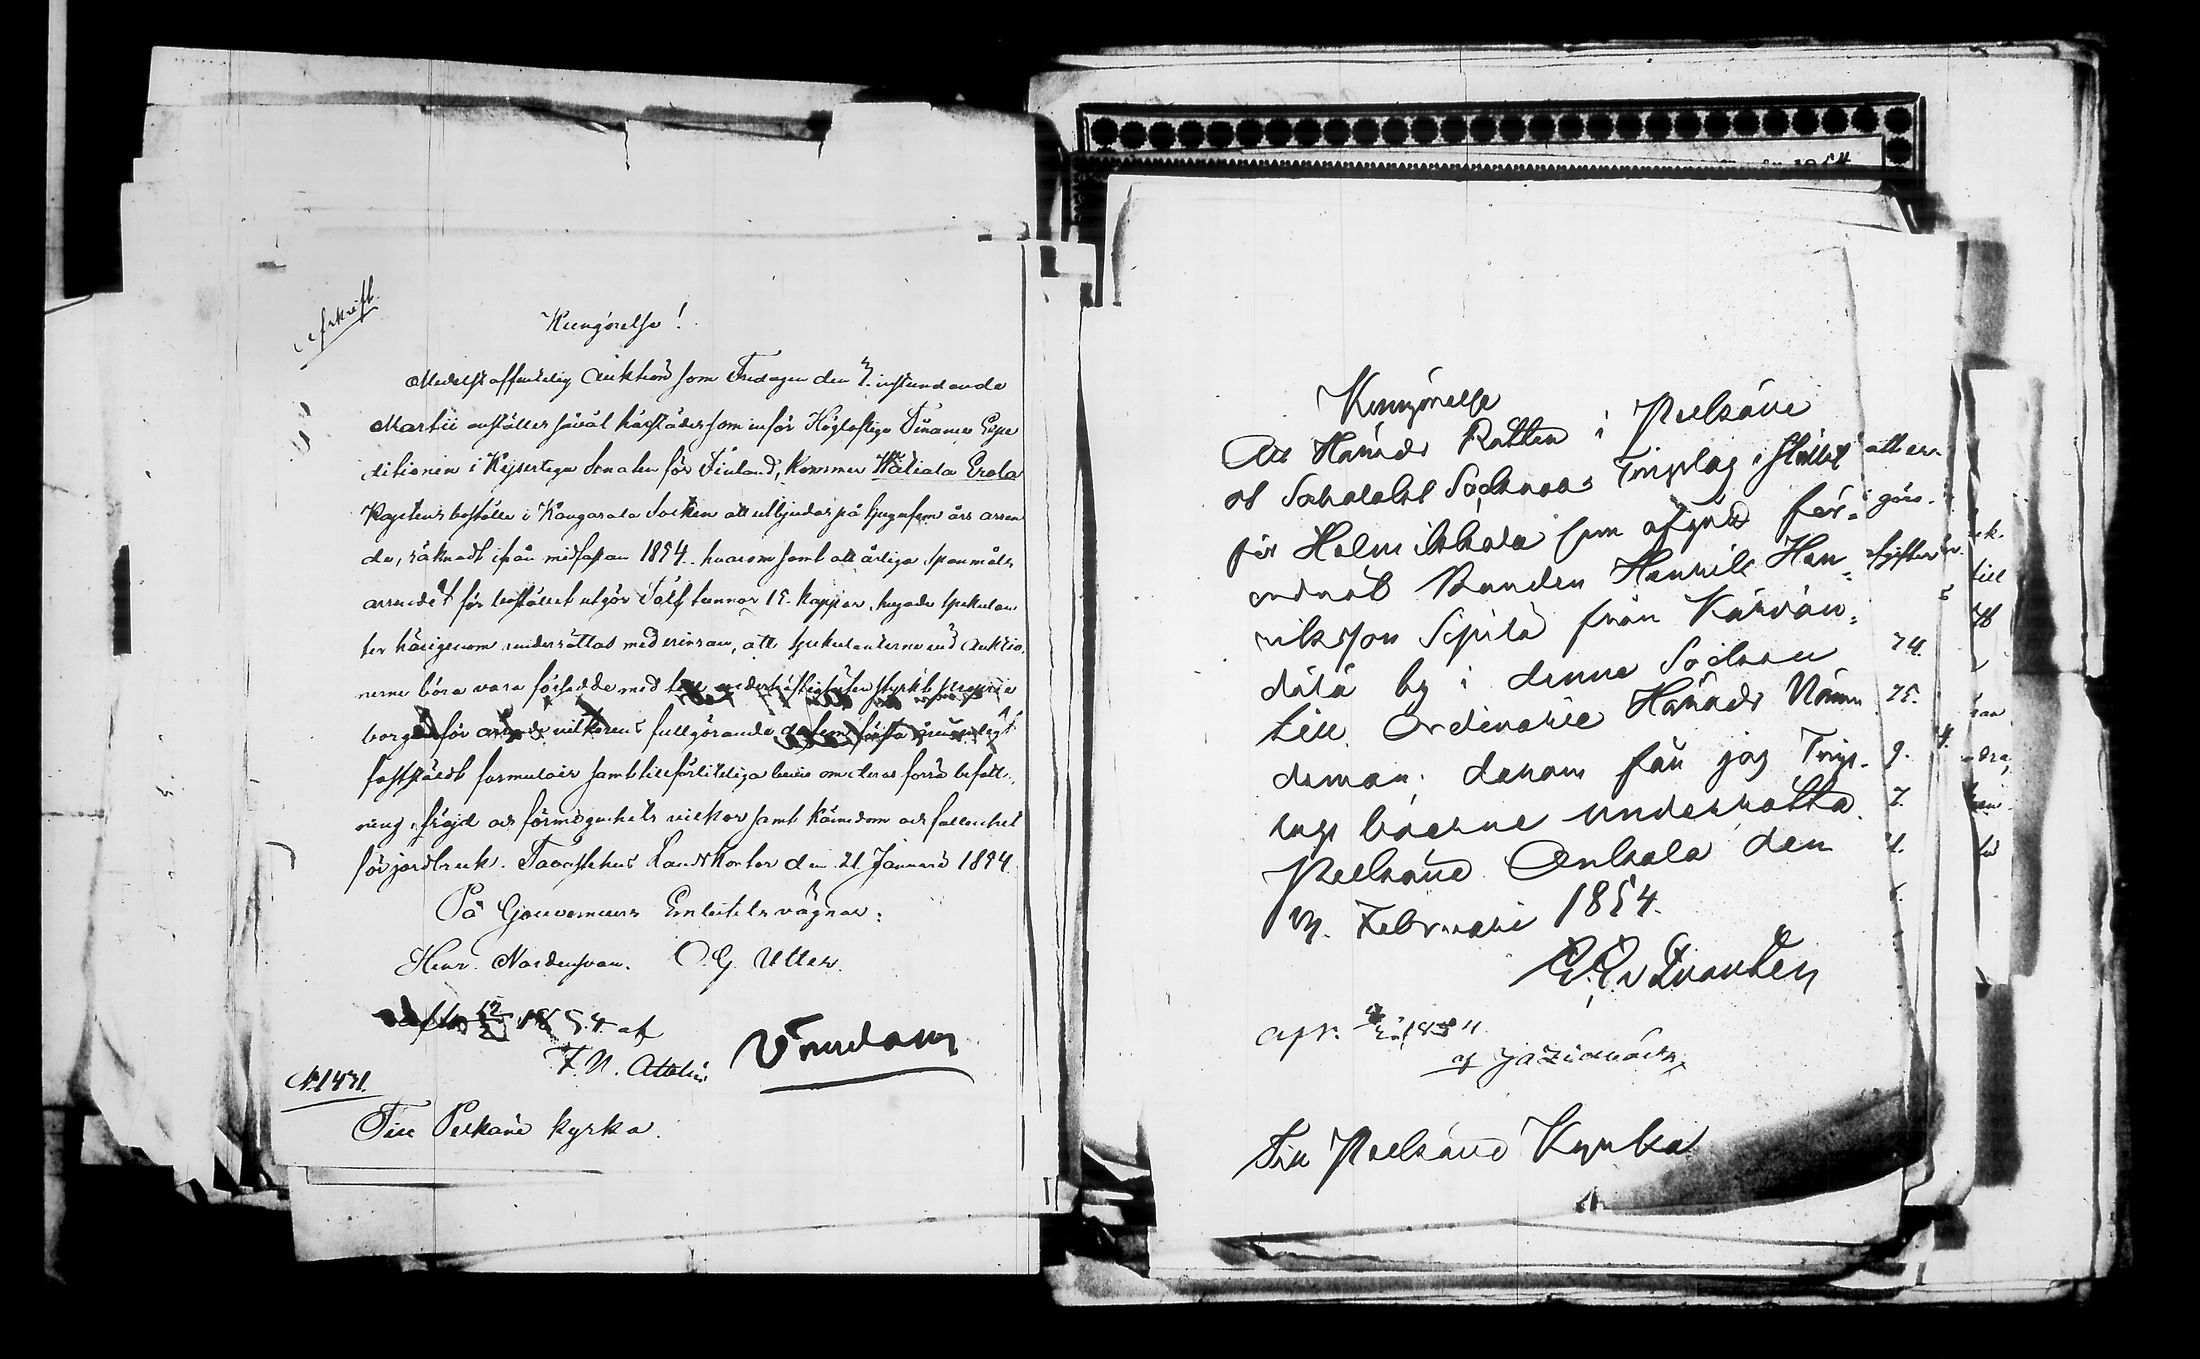 Afskrift.
Kungörelse!
Medelst offentelig Auktion som Fredagen den 3. instundande
Martii anställes såväl härstädes som inför Höglofliga Finance Expe
ditionen i Kejserliga Senaten för Finland, kommer Wätiala Erola
Kaptens boställe i Kangasala Socken att utbjudas på tjugufem års arren
de, räknadt ifrån midfastan 1854. hvarom samt att årliga Spanmåls
arrendet för bostället utgör Tolf tunnor 15. kappar, hugade spekulan
ter härigenom underrättas med erinran, att spekulanterne vid Auktio
nerne böra vara försedde med
borgen för vilkorens fullgörande
fastställdt formulair samt tillförlitliga bevis om deras förra befatt-
ning, frejd och förmögenhets vilkor samt kännedom och fallenhet
för jordbruk. Tavastehus Landt Kontor den 21. Januari 1854.
På Gouverneurs Embetets vägnar:
Henr. Nordensvan. O. G. Utter.
12/2 1854 af
F. N.
No 1471.
Till Pelkäne kyrka.
Kungörelse
Att Härads Rätten i Pelkäne
och Sahalaks Socknars Tingslag i stället
för Holm Uhkola som afgått för-
ordnat Bonden Henrik Hen-
riksson Sipilä från Kärvän-
dälä by i denne Socken
till Ordinarie Härads Nämn
deman; derom får jag Tings-
lags boerne underrätta.
Pelkäne Onkala den
Februari 1854.
1854
af
Till Pelkäne Kyrka
att er-
göro-
afgifter
74.
75.
9.
7.
4.
till